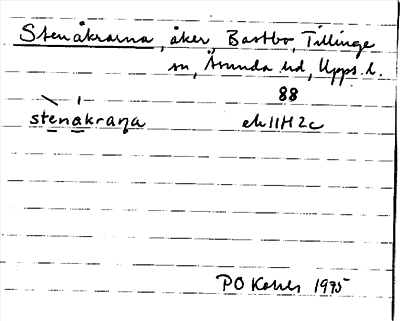 Stenåkrarna, åker, Bastbo, Tillinge
sn, Åsunda hd, Upps. l.
88
stenåkraņa ek 11H2c
PO 1975